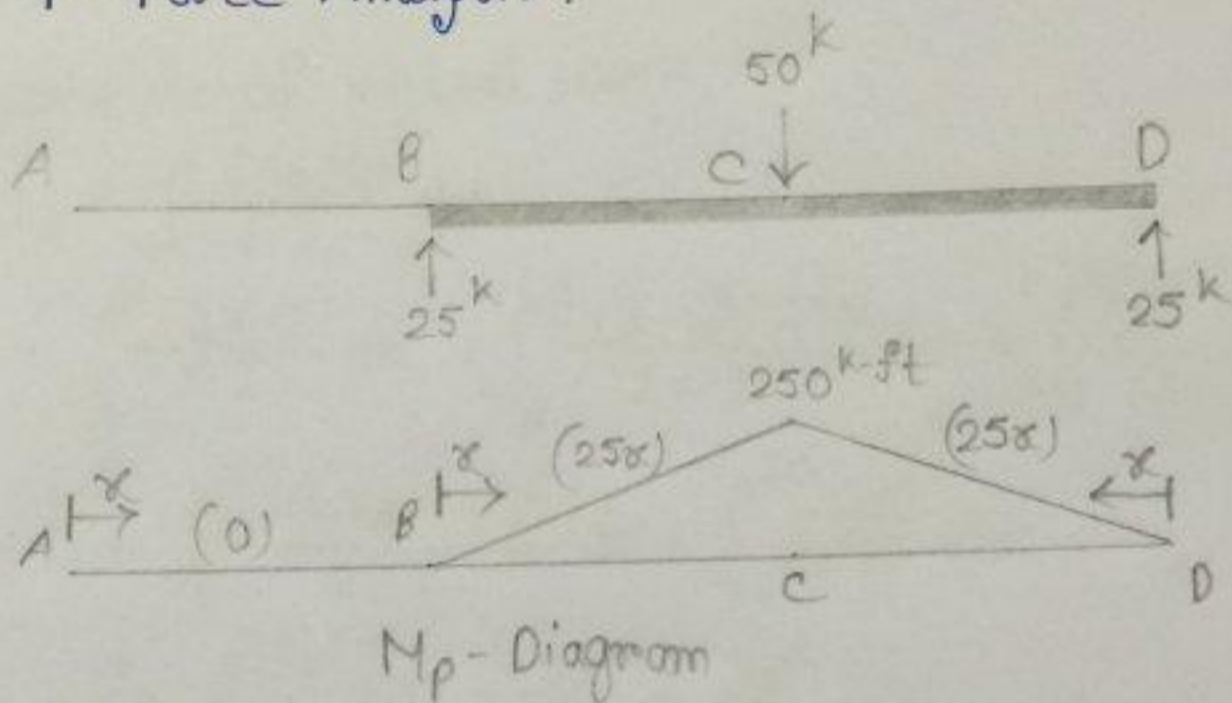 50k
A B C D
25k 25k
250k-ft
x x (25x) (25x) x
A (0) B C D
Mp - Diagram